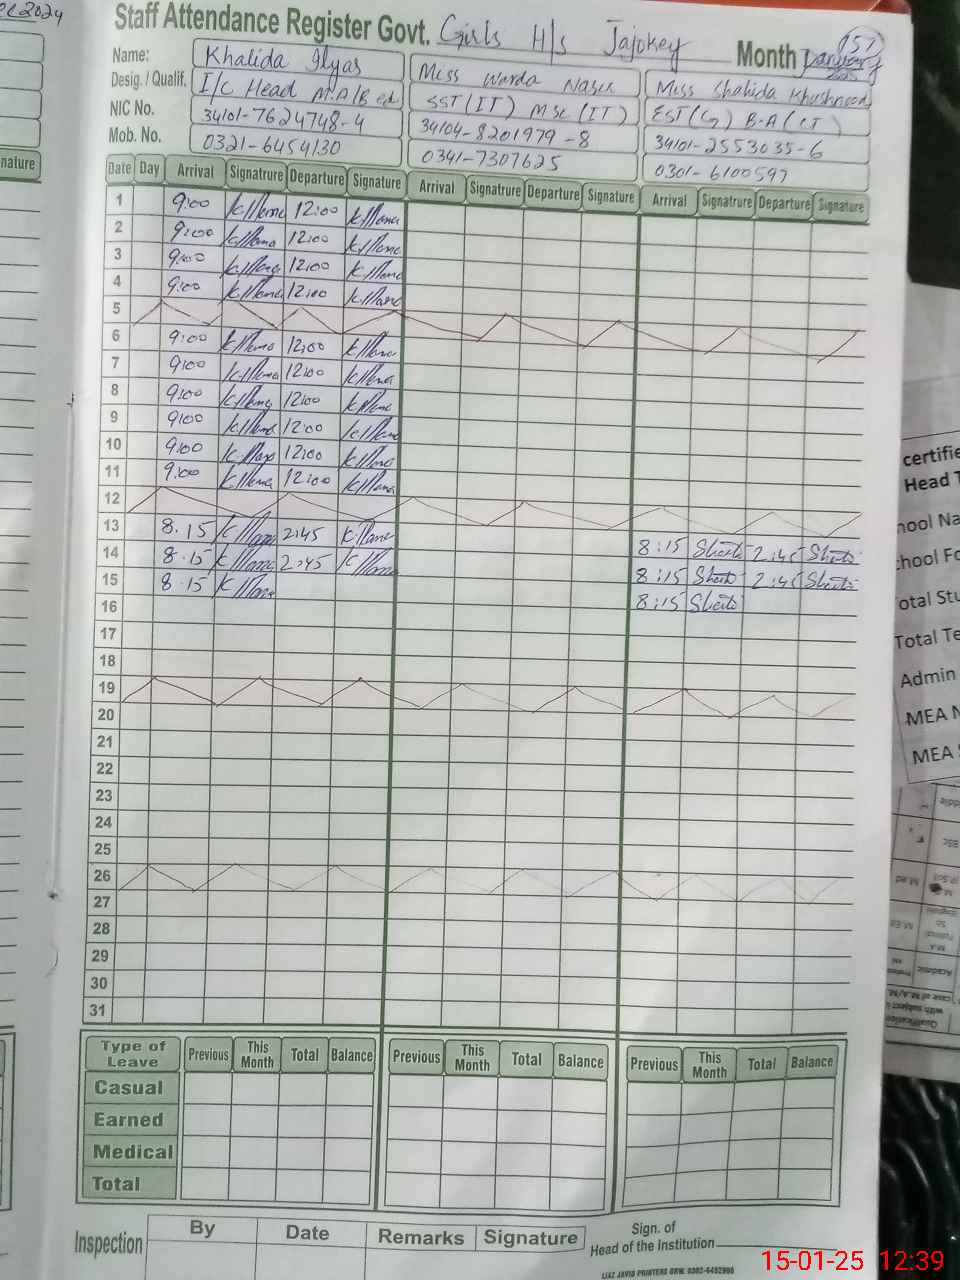 2024
Staff Attendance Register Govt. Girls H/s Jajokey Month January
157
Name: Khalida Ilyas Miss Warda Nasir Miss Shahida Khushnood
Desig. / Qualif. I/c Head M.A/B.ed SST(IT) MSc(IT) EST(G) B.A(CT)
NIC No. 34101-7624748-4 34104-8201979-8 34101-2553035-6
Mob. No. 0321-6454130 0341-7307625 0301-6100597
nature
Date Day Arrival Signatrure Departure Signature Arrival Signatrure Departure Signature Arrival Signatrure Departure Signature
1 9:00 12:00
2 9:00 12:00
3 9:00 12:00
4 9:00 12:00
5
6 9:00 12:00
7 9:00 12:00
8 9:00 12:00
9 9:00 12:00
10 9:00 12:00
11 9:00 12:00
12
13 8.15 2:45 8:15 2:45
14 8.15 2:45 8:15 2:45
15 8.15 8:15
16
17
18
19
20
21
22
23
24
25
26
27
28
29
30
31
Type of Leave Previous This Month Total Balance Previous This Month Total Balance Previous This Month Total Balance
Casual
Earned
Medical
Total
Inspection By Date Remarks Signature Sign. of
Head of the Institution
LIAZ JAVID PRINTERS GRW. 0302-6492966
certifie
Head T
hool Na
chool Fo
otal Stu
Total Te
Admin
MEA N
MEA S
15-01-25 12:39